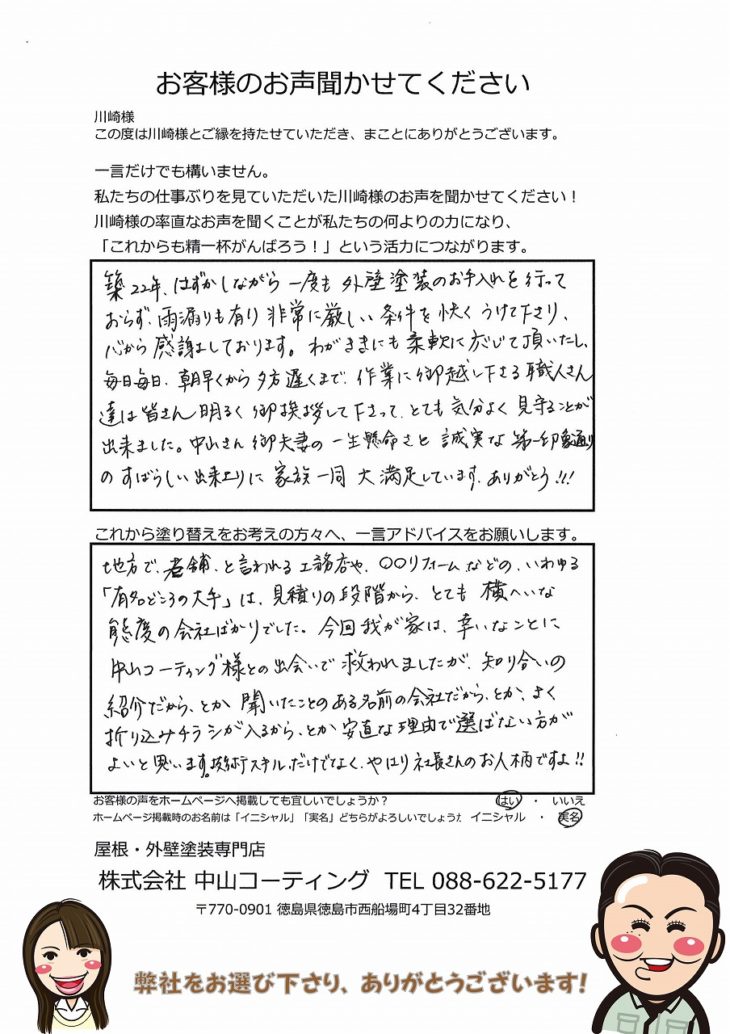 お客様のお声聞かせてください
川崎様
この度は川崎様とご縁を持たせていただき、まことにありがとうございます。
一言だけでも構いません。
私たちの仕事ぶりを見ていただいた川崎様のお声を聞かせてください!
川崎様の率直なお声を聞くことが私たちの何よりの力になり、
「これからも精一杯がんばろう!」という活力につながります。
築22年、はずかしながら一度も外壁塗装のお手入れを行って
おらず、雨漏りも有り非常に厳しい条件を快くうけて下さり、
心から感謝しております。わがままにも柔軟に応じて頂いたし、
毎日毎日、朝早くから夕方遅くまで、作業に御越し下さる職人さん
達は皆さん明るく御挨拶して下さって、とても気分よく見守ることが
出来ました。中山さん御夫妻の一生懸命さと誠実な第一印象通り
のすばらしい出来上りに家族一同大満足しています。ありがとう!!!
これから塗り替えをお考えの方々へ、一言アドバイスをお願いします。
地方で、老舗、と言われる工務店や、〇〇リフォームなどの、いわゆる
「有名どころの大手」は、見積りの段階から、とても横へいな
態度の会社ばかりでした。今回我が家は、幸いなことに
中山コーティング様との出会いで救われましたが、知り合いの
紹介だから、とか聞いたことのある名前の会社だから、とか、よく
折り込みチラシが入るから、とか安直な理由で選ばない方が
よいと思います。技術スキルだけでなく、やはり社長さんのお人柄ですよ!!
お客様の声をホームページへ掲載しても宜しいでしょうか? はい ・ いいえ
ホームページ掲載時のお名前は「イニシャル」「実名」どちらがよろしいでしょうた イニシャル ・ 実名
屋根・外壁塗装専門店
株式会社 中山コーティング TEL 088-622-5177
〒770-0901 徳島県徳島市西船場町4丁目32番地
弊社をお選び下さり、ありがとうございます!